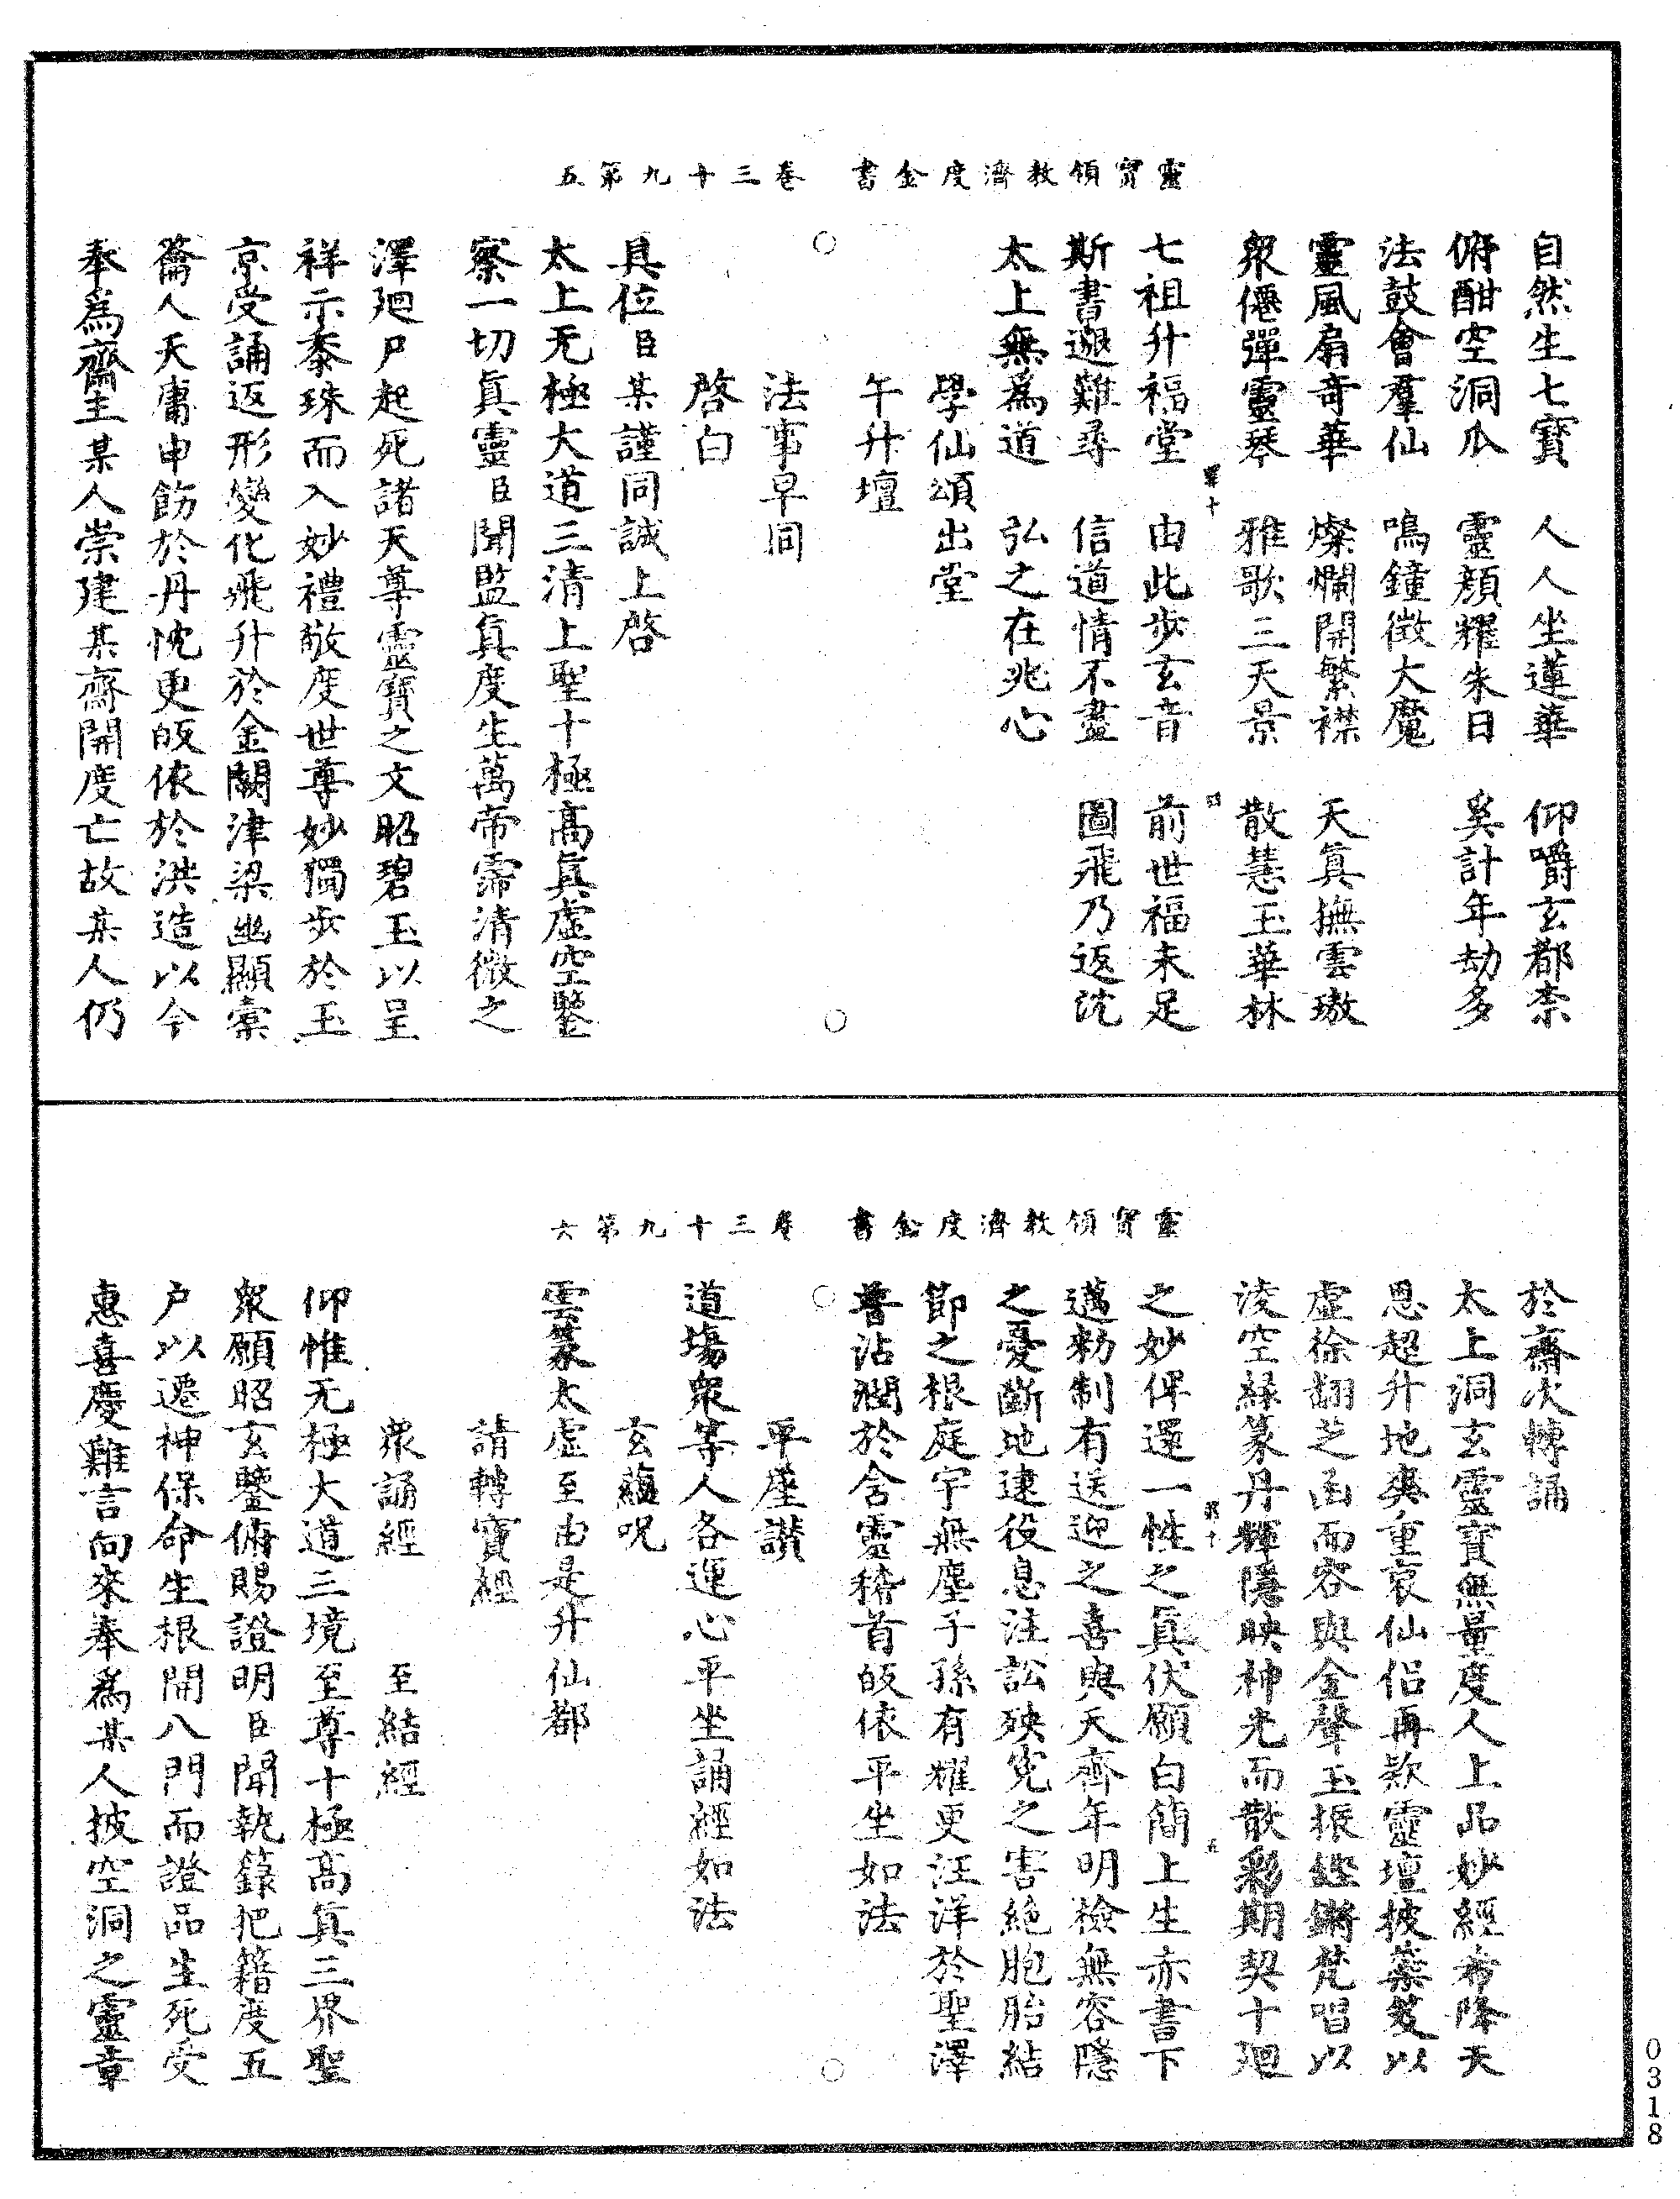 靈寶領教濟度金書　卷三十九第五
自然生七寶　人人坐蓮華　仰嚼玄都柰
俯酣空洞瓜　靈顏耀朱日　奚計年劫多
法鼓會羣仙　鳴鐘徵大魔
靈風扇奇華　燦爛開繁襟　天眞撫雲璈
眾僊彈靈琴　雅歌三天景　散慧玉華林
七祖升福堂　由此步玄音　前世福未足
斯書邈難尋　信道情不盡　圖飛乃返沈
太上無爲道　弘之在兆心
學仙頌出堂
午升壇
法事早同
啓白
具位臣某謹同誠上啓
太上无極大道三清上聖十極高眞虛空鑒
察一切眞靈臣聞監眞度生萬帝霈清微之
澤廻尸起死諸天尊靈寶之文昭碧玉以呈
祥示黍珠而入妙禮敬度世尊妙獨步於玉
京受誦返形變化飛升於金闕津梁幽顯橐
籥人天庸申飭於丹忱更皈依於洪造以今
奉爲齋主某人崇建某齋開度亡故某人仍
靈寶領教濟度金書　卷三十九第六
於齋次轉誦
太上洞玄靈寶無量度人上品妙經希降天
恩超升地爽重哀仙侶再歎靈壇披蘂笈以
虛徐翻芝函而容與金聲玉振鏗鏘梵唱以
淩空綠篆丹輝隱映神光而散彩期契十廻
之妙俾還一性之眞伏願白簡上生赤書下
邁勑制有送迎之喜與天齊年明檢無容隱
之憂斷地逮役息注訟殃寃之害絕胞胎結
節之根庭宇無塵子孫有耀更汪洋於聖澤
普沾潤於含靈稽首皈依平坐如法
平座讚
道場眾等人各運心平坐誦經如法
玄蘊呪
雲篆太虛至由是升仙都
請轉寶經
眾誦經　至結經
仰惟无極大道三境至尊十極高眞三界聖
眾願昭玄鑒俯賜證明臣聞執籙把籍度五
戶以遷神保命生根開八門而證品生死受
惠喜慶難言向來奉爲某人披空洞之靈章
0318